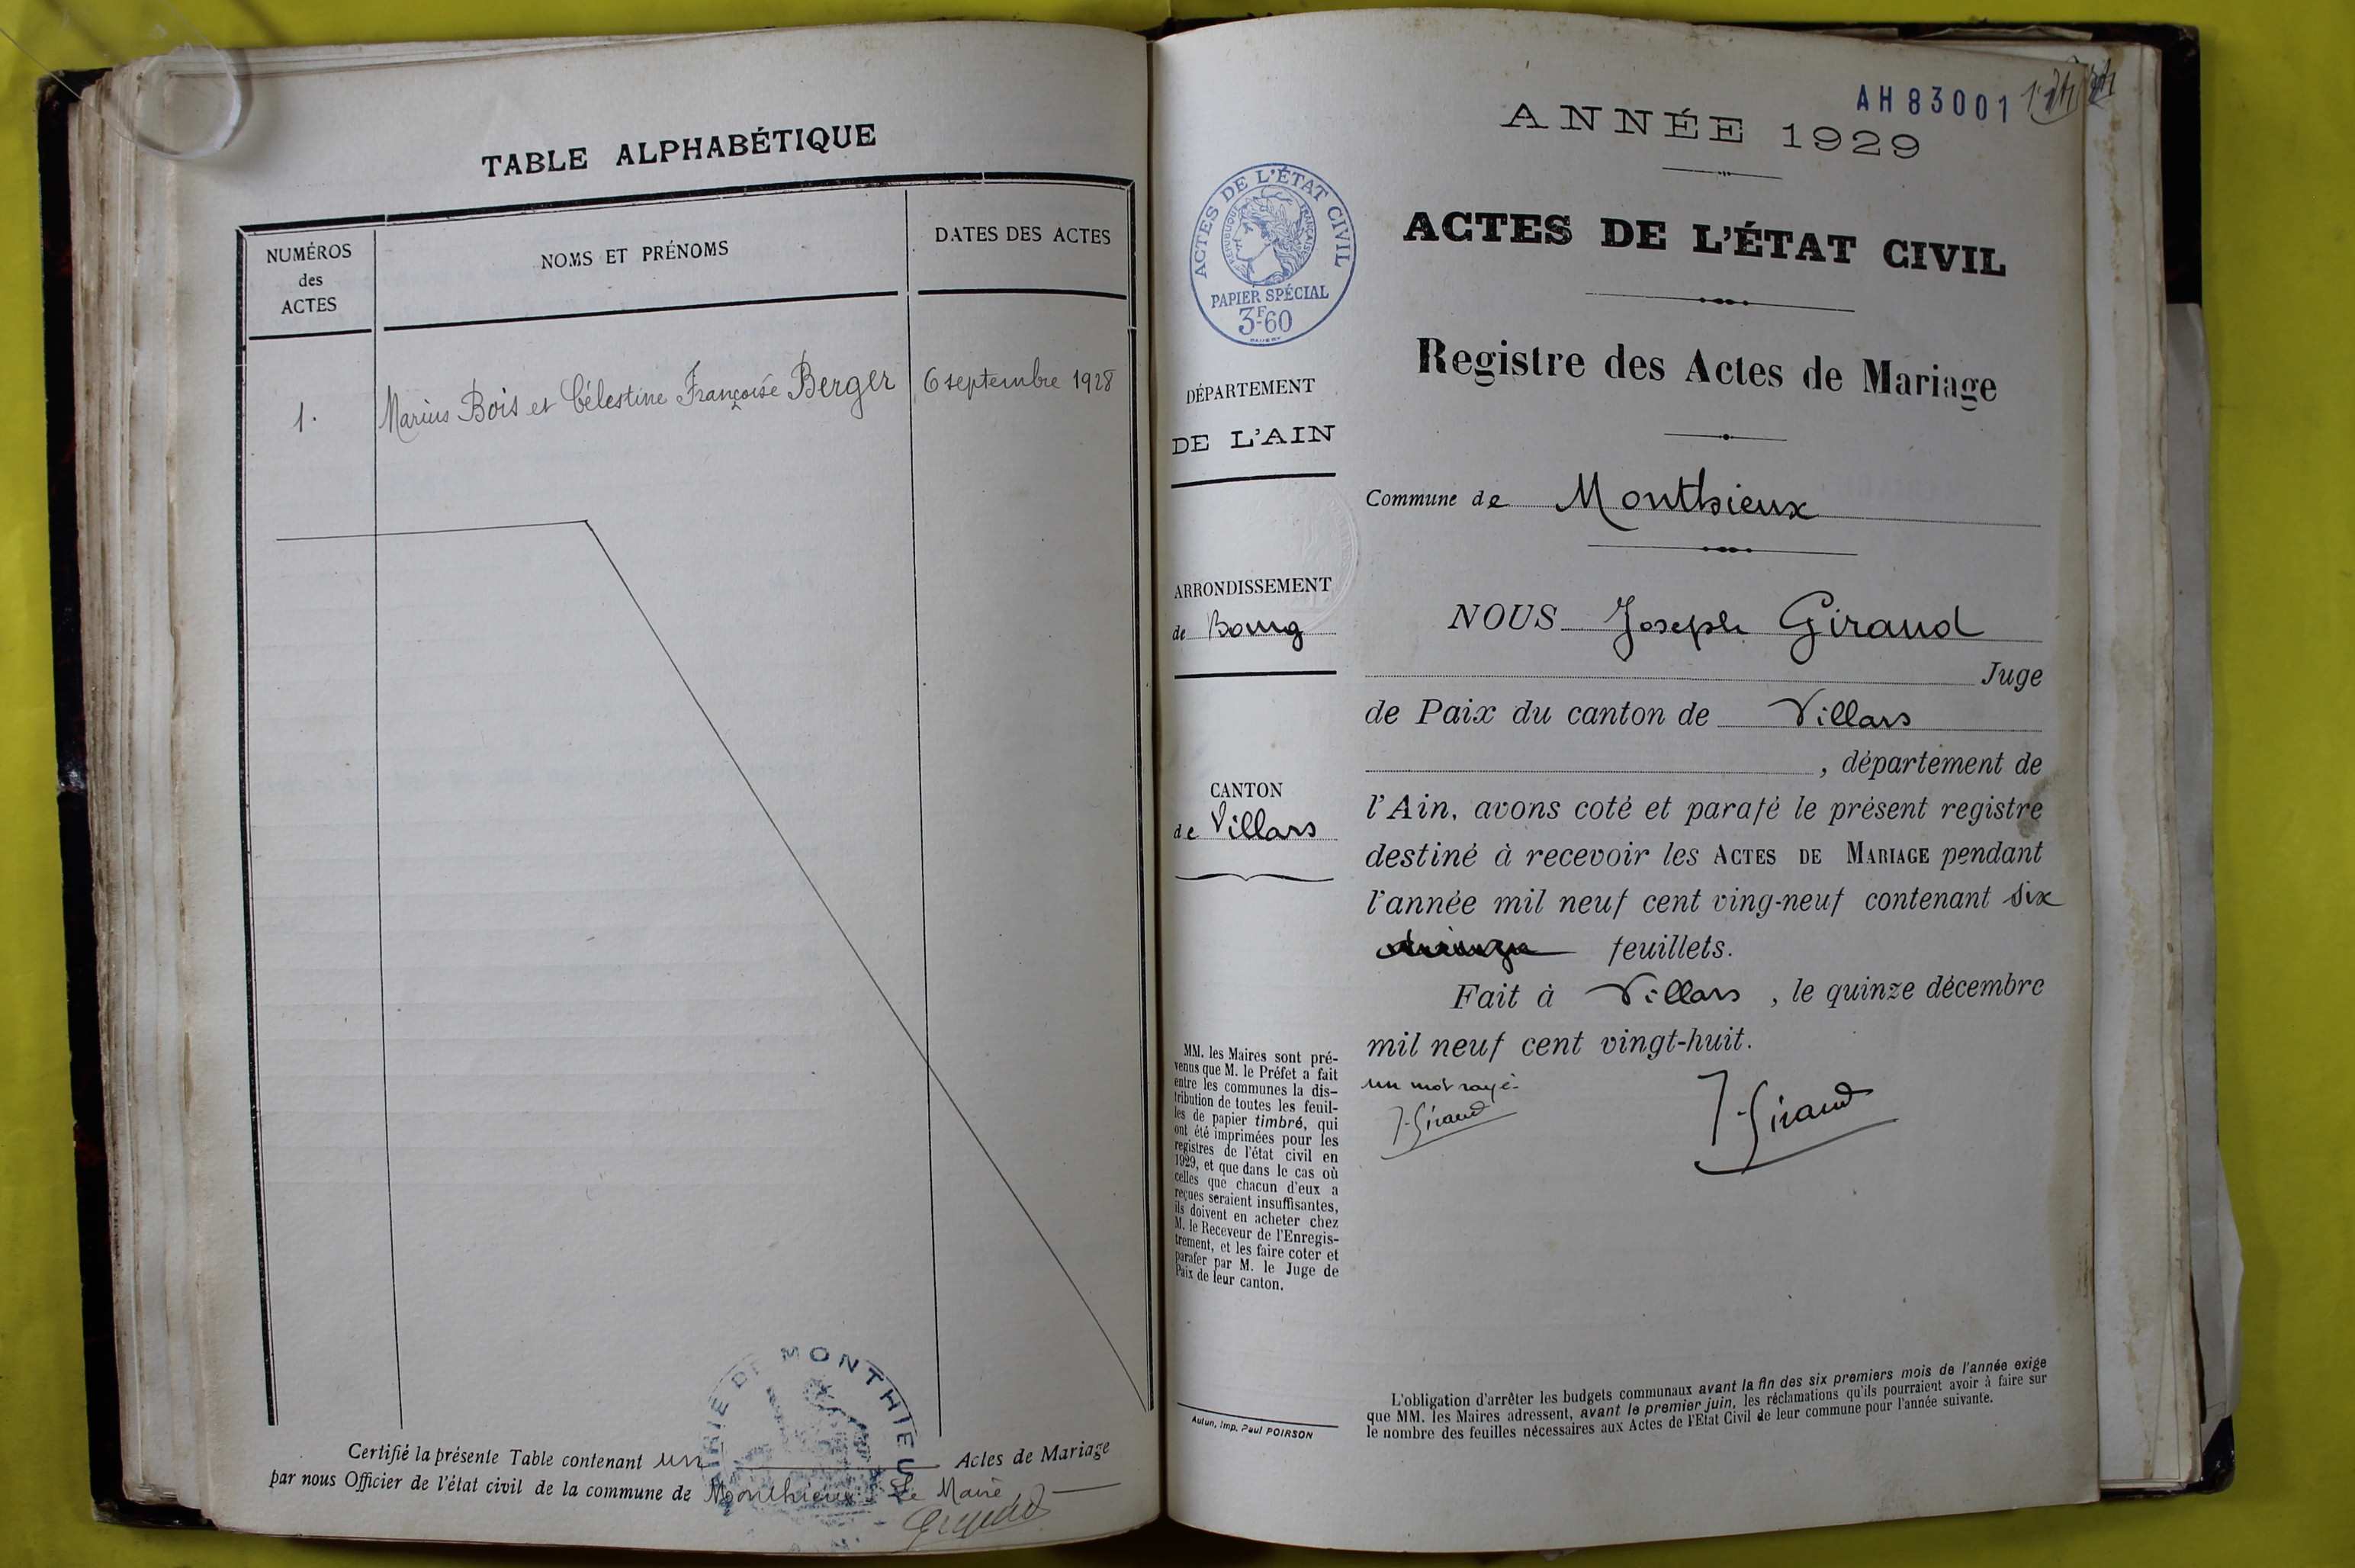 TABLE ALPHABÉTIQUE
NUMÉROS
des
ACTES
NOMS ET PRÉNOMS
DATES DES ACTES
1. Marius Bois et Célestine Françoise Berger 6 septembre 1928
Certifié la présente Table contenant un Actes de Mariage
par nous Officier de l'état civil de la commune de Monthieux Le Maire
MAIRIE DE MONTHIEUX
AH83001
ANNÉE 1929
ACTES DE L'ÉTAT CIVIL
RÉPUBLIQUE FRANÇAISE
PAPIER SPÉCIAL
3F60
ACTES DE L'ÉTAT CIVIL
Registre des Actes de Mariage
DÉPARTEMENT
DE L'AIN
Commune de Monthieux
ARRONDISSEMENT
de Bourg
CANTON
de Villars
NOUS Joseph Giraud
Juge
de Paix du canton de Villars
, département de
l'Ain, avons coté et parafé le présent registre
destiné à recevoir les ACTES DE MARIAGE pendant
l'année mil neuf cent ving-neuf contenant six
feuillets.
Fait à Villars, le quinze décembre
mil neuf cent vingt-huit.
un mot rayé.
J. Giraud
J. Giraud
MM. les Maires sont pré-
venus que M. le Préfet a fait
entre les communes la dis-
tribution de toutes les feuil-
les de papier timbré, qui
ont été imprimées pour les
registres de l'état civil en
1929, et que dans le cas où
celles que chacun d'eux a
reçues seraient insuffisantes,
ils doivent en acheter chez
M. le Receveur de l'Enregis-
trement, et les faire coter et
parafer par M. le Juge de
Paix de leur canton.
Autun, Imp. Paul POIRSON
L'obligation d'arrêter les budgets communaux avant la fin des six premiers mois de l'année exige
que MM. les Maires adressent, avant le premier juin, les réclamations qu'ils pourraient avoir à faire sur
le nombre des feuilles nécessaires aux Actes de l'Etat Civil de leur commune pour l'année suivante.